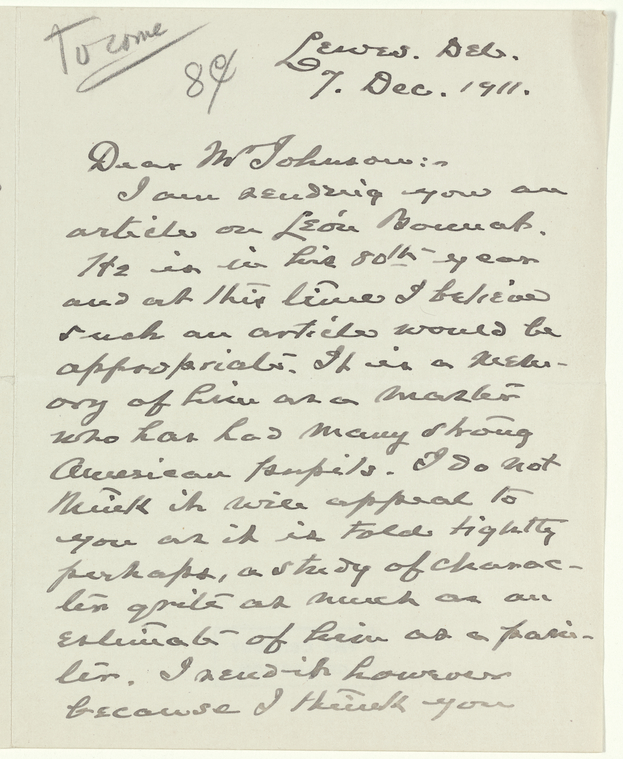 To come
8¢
Lewes. Del.
7. Dec. 1911.
Dear Mr Johnson:-
I am sending you an
article on León Bonnat.
He is in his 80th year
and at this time I believe
such an article would be
appropriate. It is a mem-
ory of him as a master
who has had many strong
American pupils. I do not
think it will appeal to
you as it is told lightly
perhaps, a study of charac-
ter quite as much as an
estimate of him as a pain-
ter. I send it however
because I think you